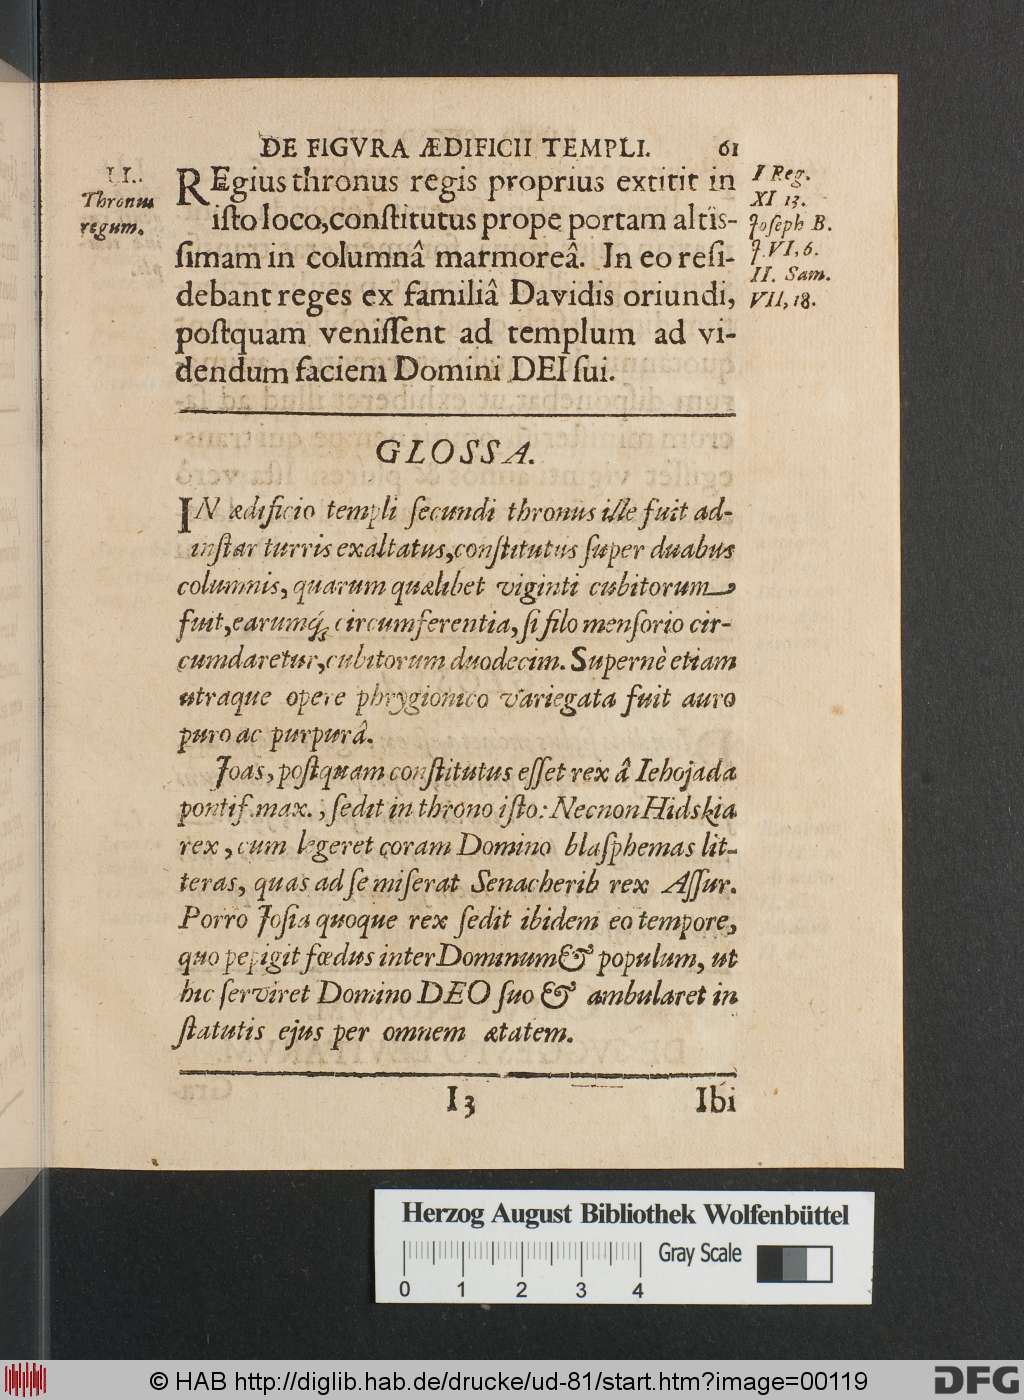 DE FIGVRA ÆDIFICII TEMPLI. 61
II.
Thronus
regum.
REgius thronus regis proprius extitit in
isto loco, constitutus prope portam altis-
simam in columnâ marmoreâ. In eo resi-
debant reges ex familiâ Davidis oriundi,
postquam venissent ad templum ad vi-
dendum faciem Domini DEI sui.
I Reg.
XI 13.
Joseph B.
J. VI, 6.
II. Sam.
VII, 18.
GLOSSA.
IN ædificio templi secundi thronus iste fuit ad-
instar turris exaltatus, constitutus super duabus
columnis, quarum quælibet viginti cubitorum
fuit, earumq́; circumferentia, si filo mensorio cir-
cumdaretur, cubitorum duodecim. Supernè etiam
utraque opere phrygionico variegata fuit auro
puro ac purpurâ.
Joas, postquam constitutus esset rex â Iehojada
pontif. max., sedit in throno isto: Necnon Hidskia
rex, cum legeret coram Domino blasphemas lit-
teras, quas ad se miserat Senacherib rex Assur.
Porro Josia quoque rex sedit ibidem eo tempore,
quo pepigit fœdus inter Dominum & populum, ut
hic serviret Domino DEO suo & ambularet in
statutis ejus per omnem ætatem.
I 3 Ibi
Herzog August Bibliothek Wolfenbüttel
Gray Scale
0 1 2 3 4
© HAB http://diglib.hab.de/drucke/ud-81/start.htm?image=00119
DFG